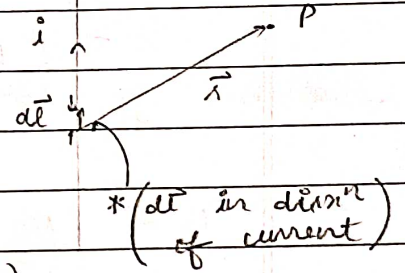 i
P
dl⃗
r⃗
* (dl⃗ in dirxⁿ
of current)